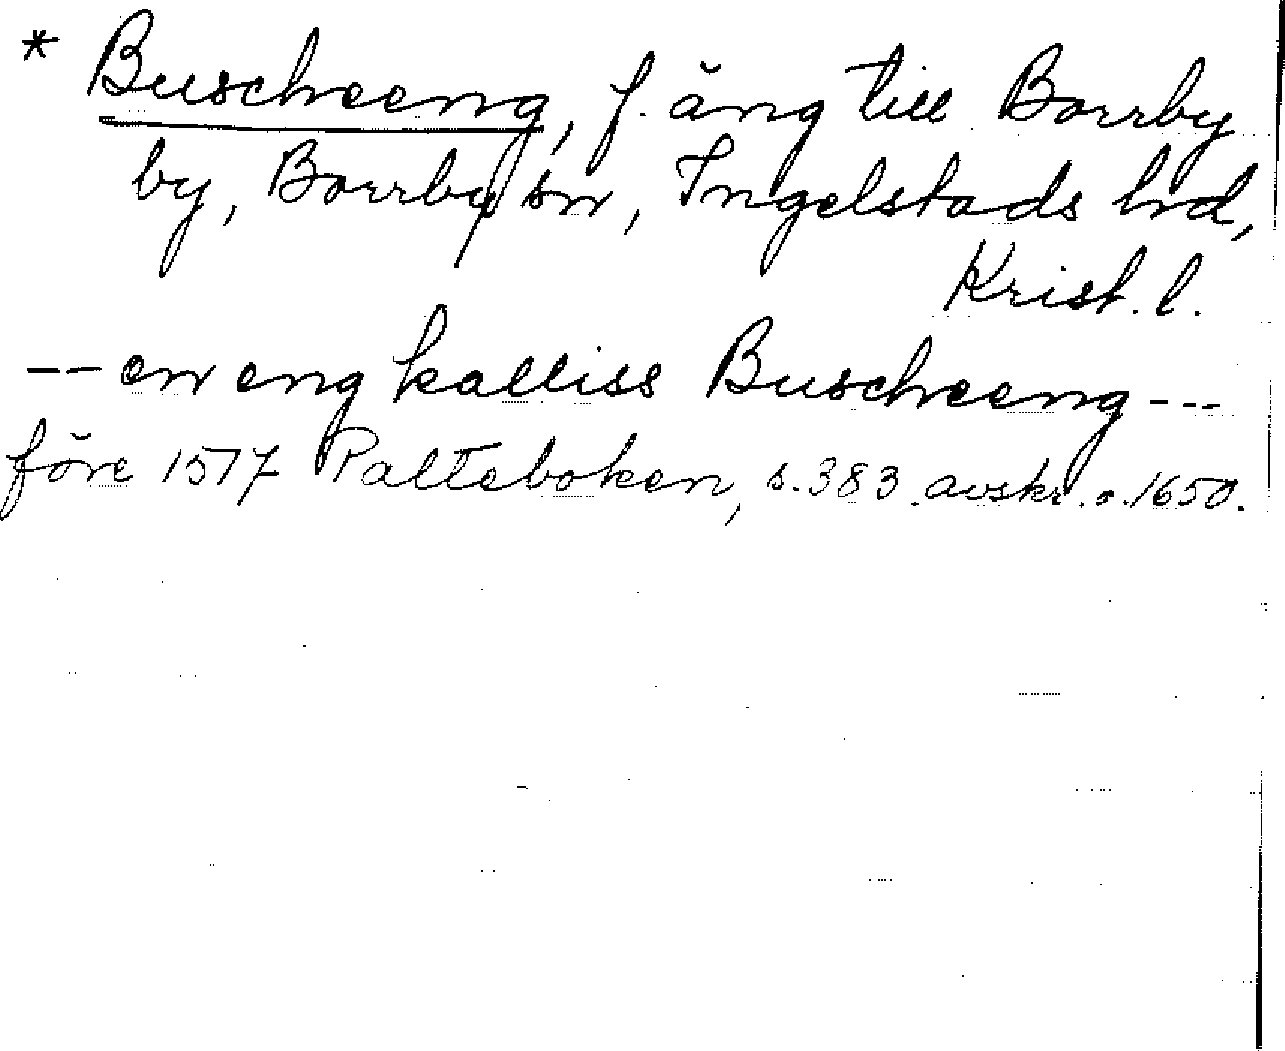 * Buscheeng, f. äng till Borrby
by, Borrby sn, Ingelstads hrd,
Krist. l.
-- en eng kalliss Buscheeng ---
före 1577 Palteboken, s. 383. avskr. o. 1650.